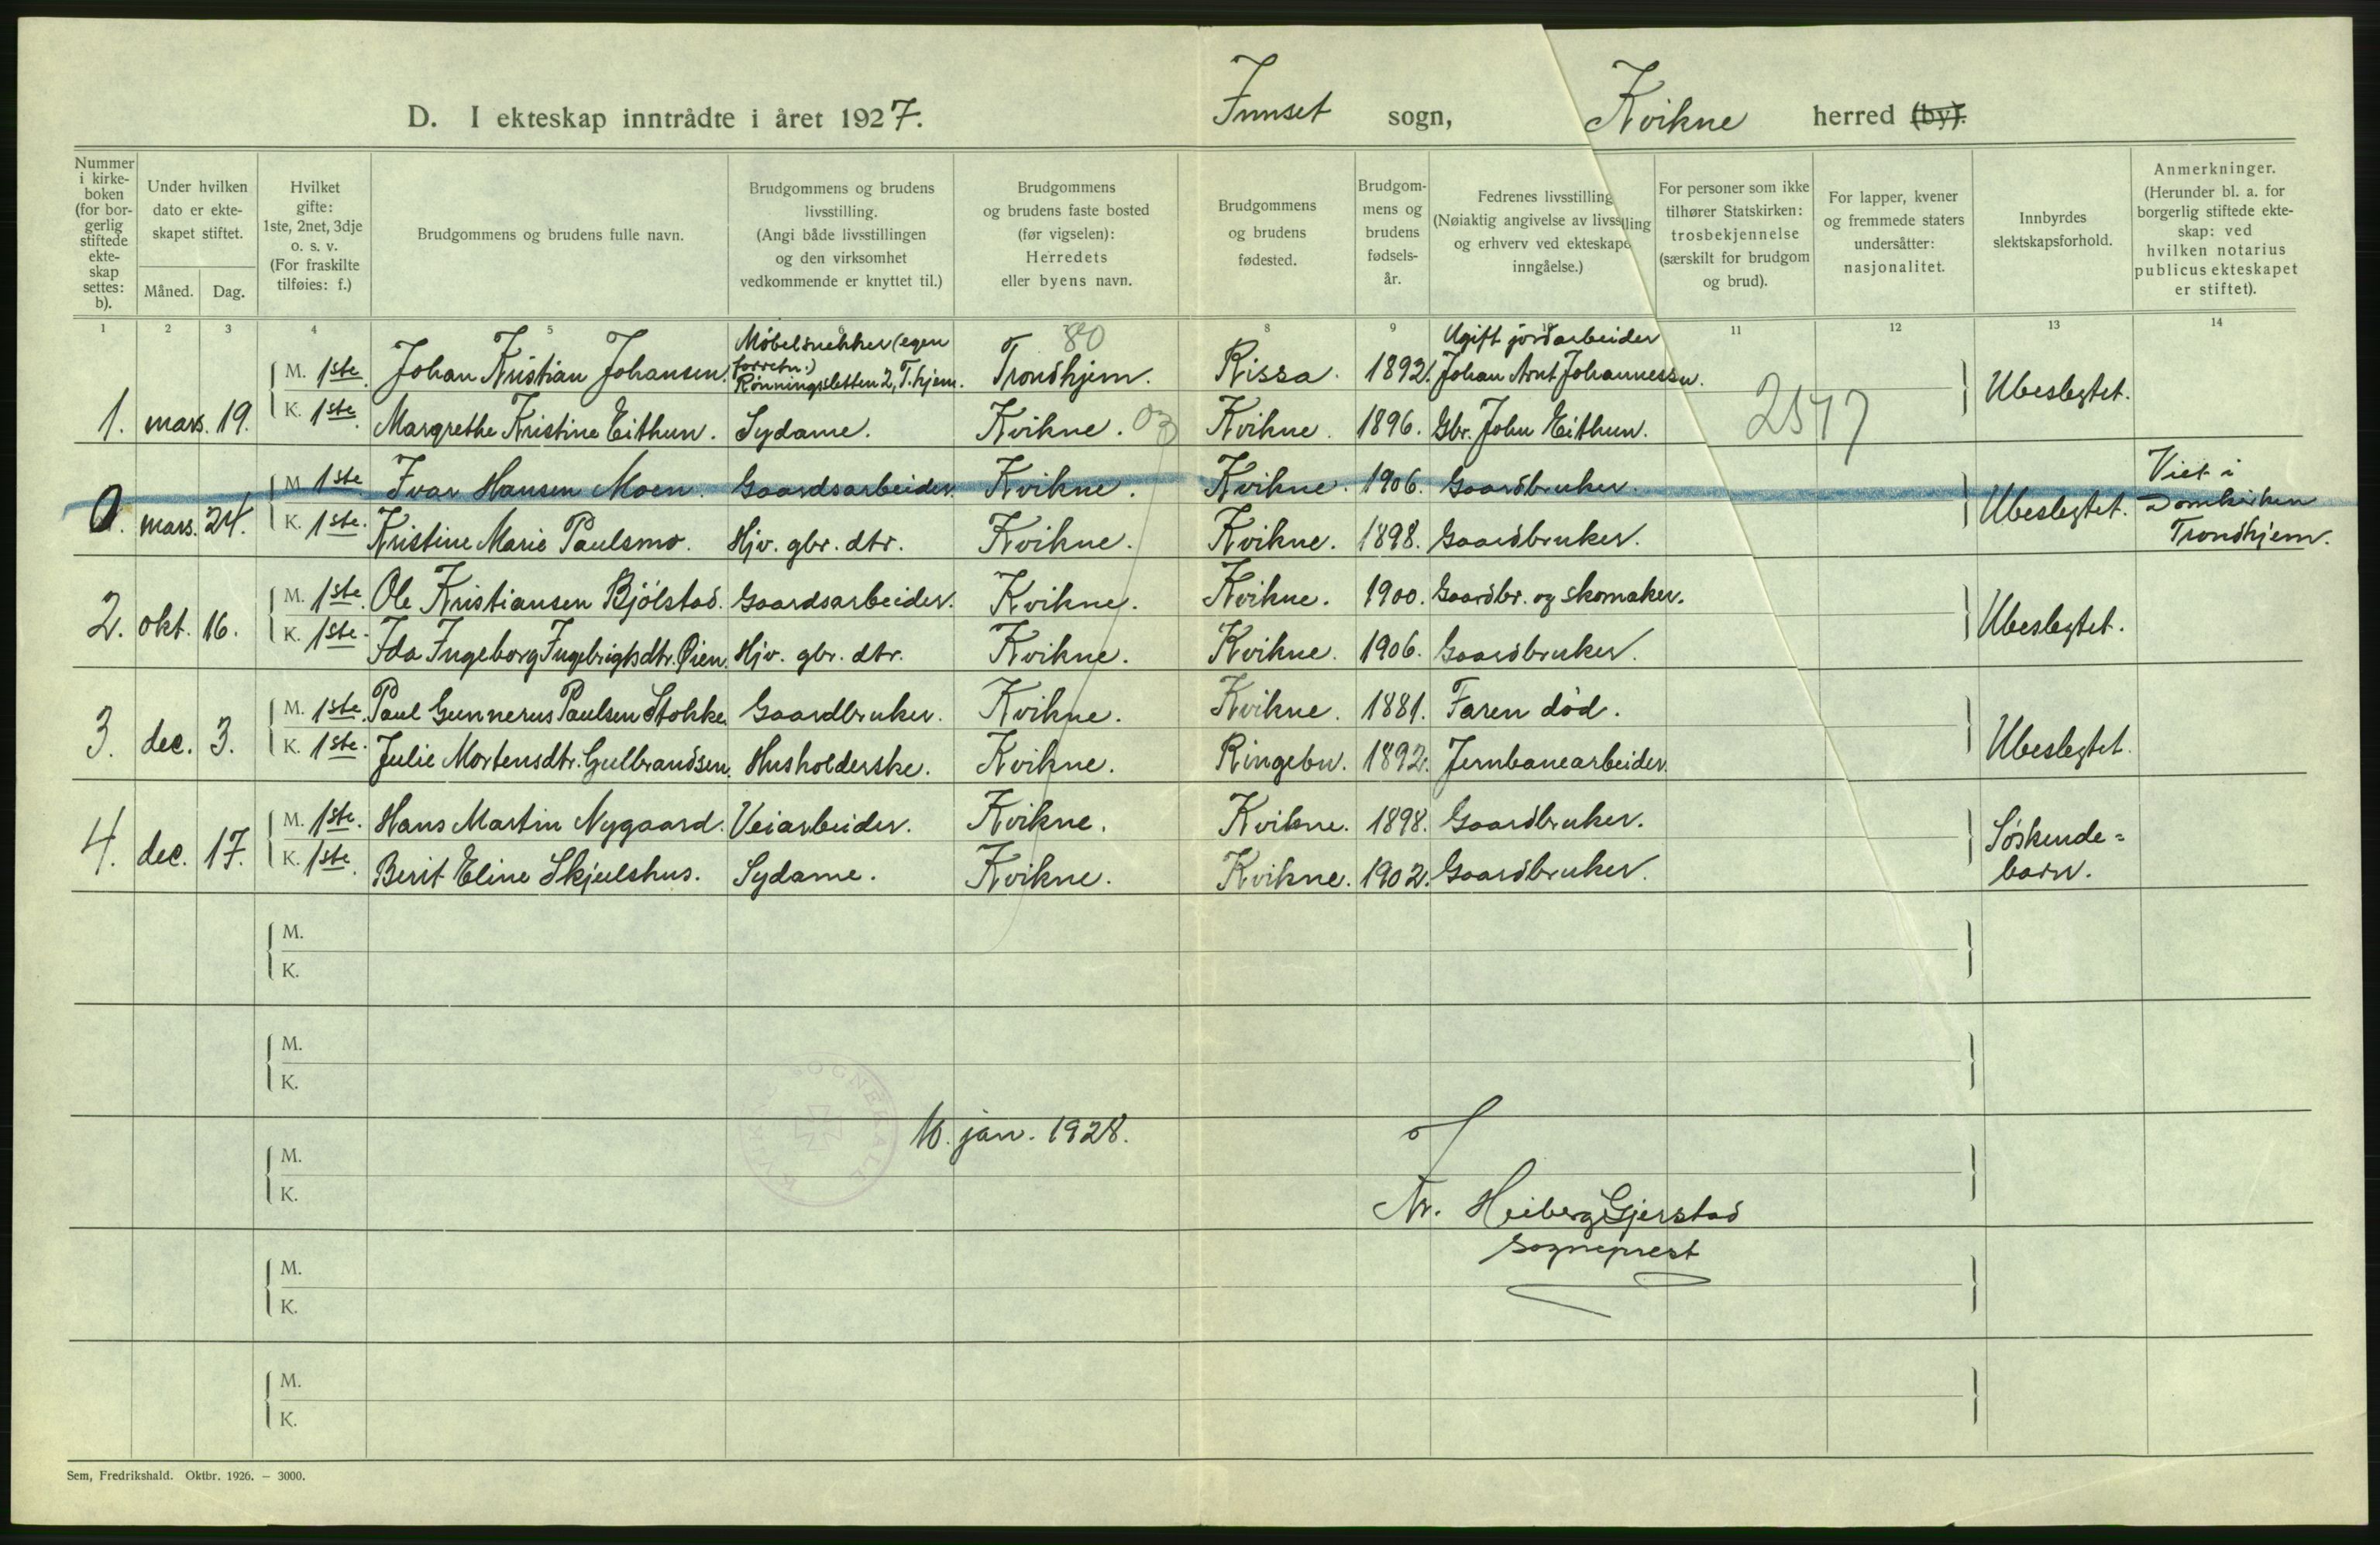 D. I ekteskap inntrådte i året 1927. Innset sogn, Kvikne herred (by).
Nummer i kirkeboken (for borgerlig stiftede ekteskap settes: b).
Under hvilken dato er ekteskapet stiftet.
Måned. Dag.
Hvilket gifte: 1ste, 2net, 3dje o. s. v. (For fraskilte tilføies: f.)
Brudgommens og brudens fulle navn.
Brudgommens og brudens livsstilling. (Angi både livsstillingen og den virksomhet vedkommende er knyttet til.)
Brudgommens og brudens faste bosted (før vigselen): Herredets eller byens navn.
Brudgommens og brudens fødested.
Brudgommens og brudens fødselsår.
Fedrenes livsstilling (Nøiaktig angivelse av livsstilling og erhverv ved ekteskapets inngåelse.)
For personer som ikke tilhører Statskirken: trosbekjennelse (særskilt for brudgom og brud).
For lapper, kvener og fremmede staters undersåtter: nasjonalitet.
Innbyrdes slektskapsforhold.
Anmerkninger. (Herunder bl. a. for borgerlig stiftede ekteskap: ved hvilken notarius publicus ekteskapet er stiftet).
1 2 3 4 5 6 7 8 9 10 11 12 13 14
1. mars. 19.
M. 1ste. Johan Kristian Johansen. Möbelsnekker (egen forretn.) Rönningsletten 2, T.hjem. 80 Trondhjem. Rissa. 1892. Ugift jordarbeider Johan Arnt Johannessen. 2517 Ubeslegtet.
K. 1ste. Margrethe Kristine Eithun. Sydame. Kvikne. 03 Kvikne. 1896. Gbr. John Eithun.
0. mars. 24.
M. 1ste Ivar Hansen Moen. Gaardsarbeider. Kvikne. Kvikne. 1906. Gaardbruker. Ubeslegtet. Viet i Domkirken Trondhjem.
K. 1ste. Kristine Marie Paulsmo. Hjv. gbr. dtr. Kvikne. Kvikne. 1898. Gaardbruker.
2. okt. 16.
M. 1ste. Ole Kristiansen Bjölstad. Gaardsarbeider. Kvikne. Kvikne. 1900. Gaardbr. og skomaker. Ubeslegtet.
K. 1ste. Ida Ingeborg Ingebrigtsdtr. Øien. Hjv. gbr. dtr. Kvikne. Kvikne. 1906. Gaardbruker.
3. dec. 3.
M. 1ste. Paul Gunnerus Paulsen Stokke. Gaardbruker. Kvikne. Kvikne. 1881. Faren död. Ubeslegtet.
K. 1ste. Julie Mortensdtr. Gulbrandsen. Husholderske. Kvikne. Ringebu. 1892. Jernbanearbeider.
4. dec. 17.
M. 1ste. Hans Martin Nygaard. Veiarbeider. Kvikne. Kvikne. 1898. Gaardbruker. Söskende=
K. 1ste. Berit Eline Skjulshus. Sydame. Kvikne. Kvikne. 1902. Gaardbruker. barn.
M.
K.
M.
K.
10. jan. 1928.
M.
K.
Heiberg Gjerstad
sogneprest
M.
K.
M.
K.
Sem, Fredrikshald. Oktbr. 1926. – 3000.